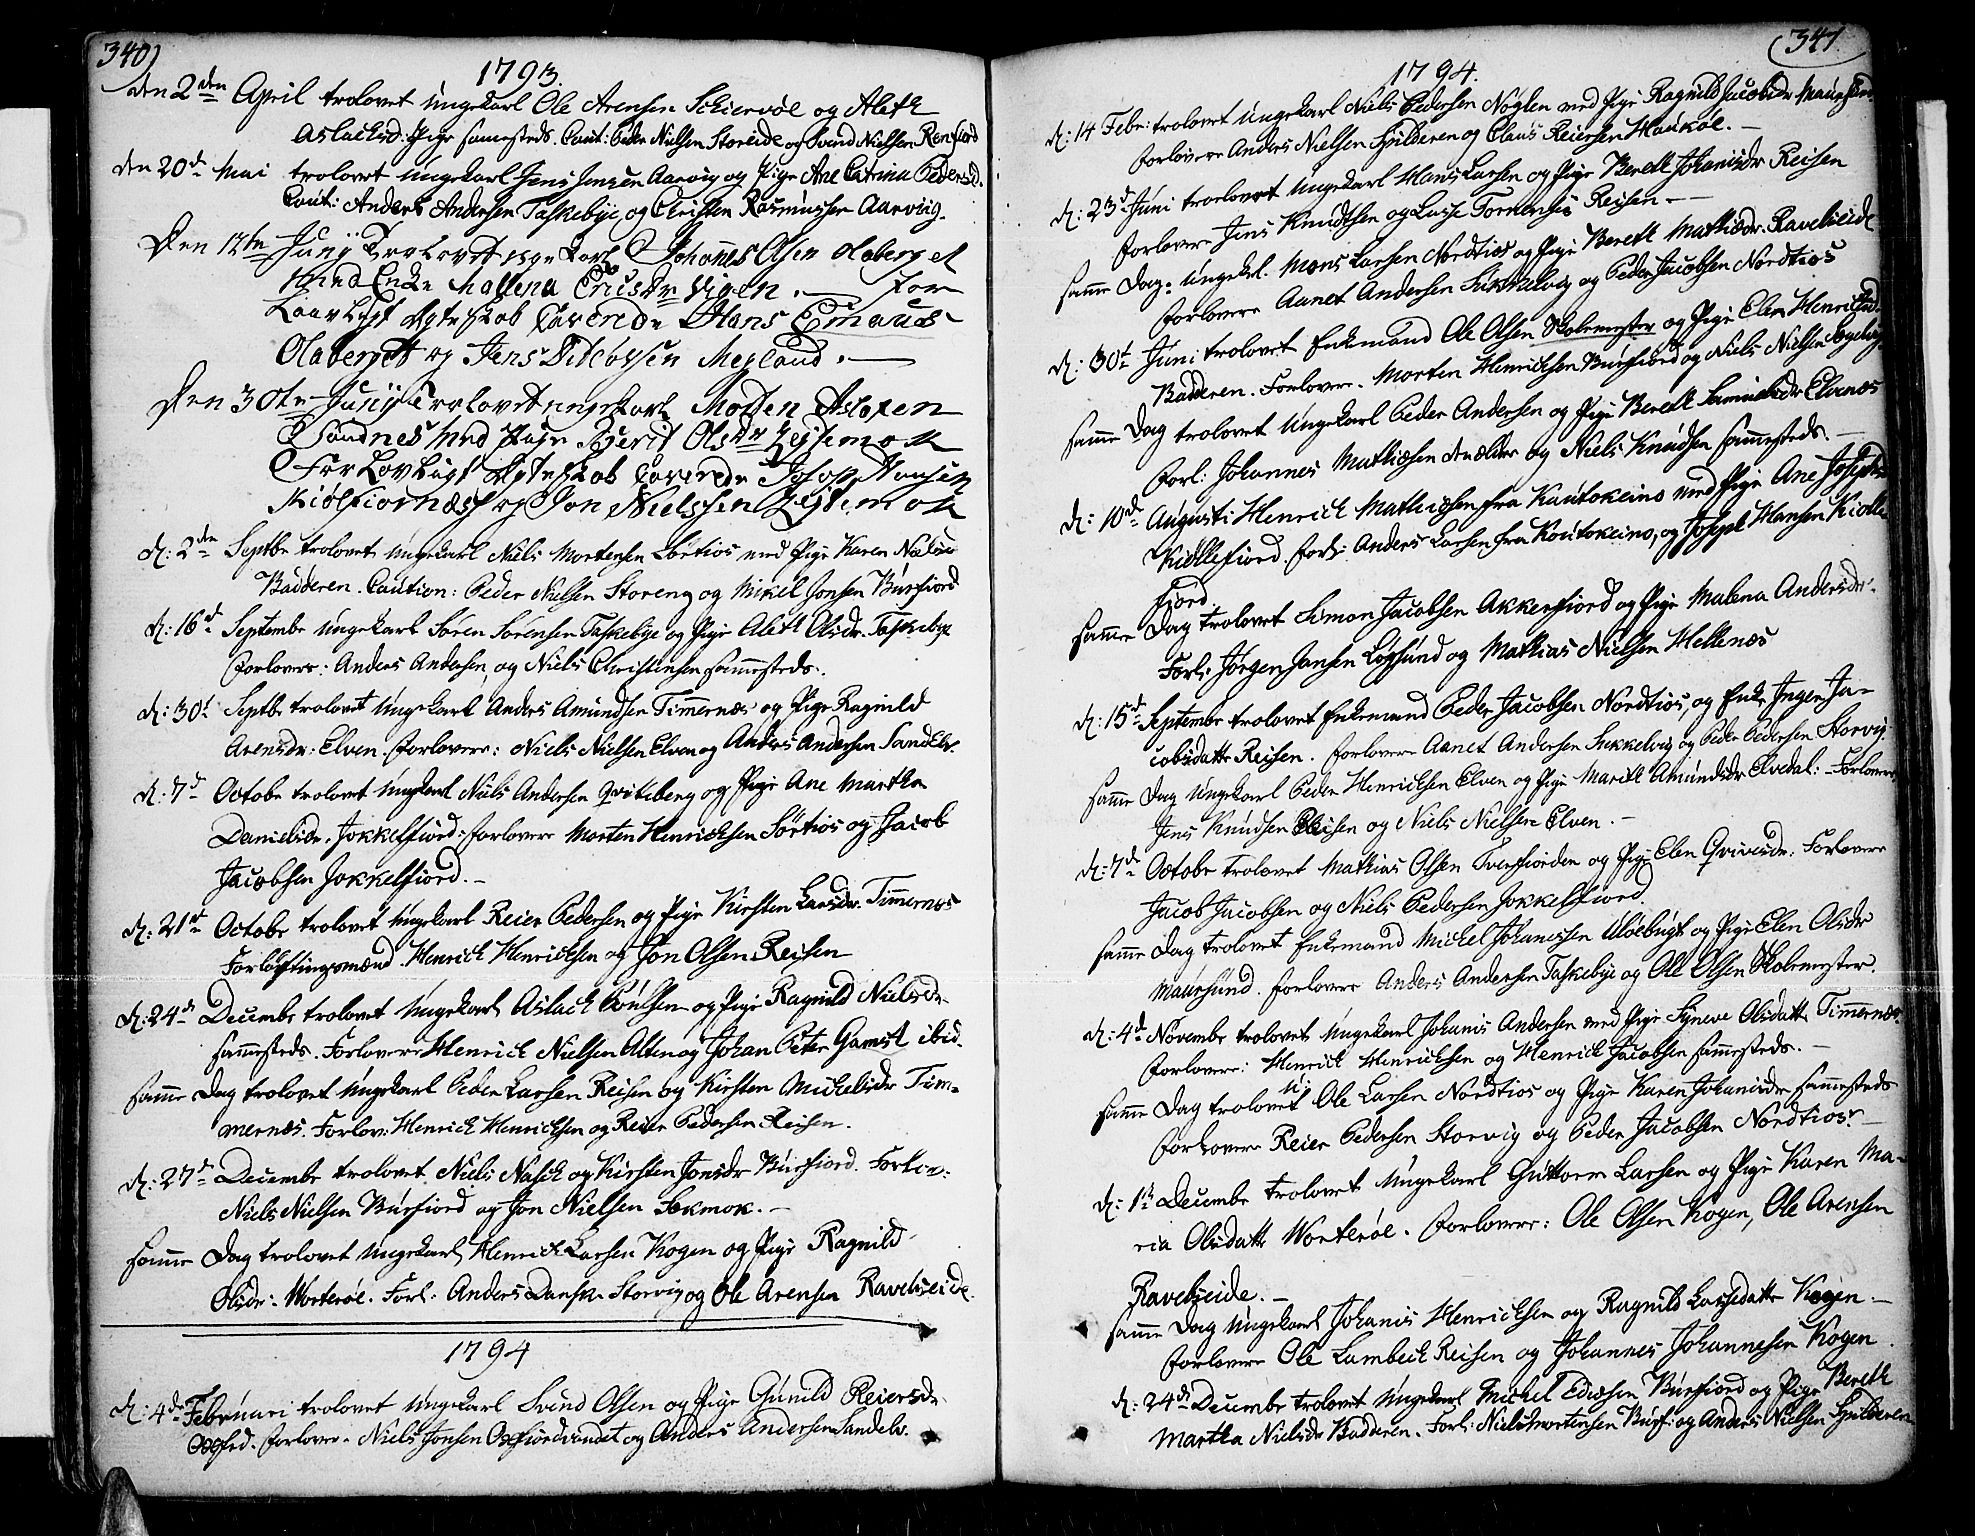 340)
1793.
den 2den April trolovet Ungekarl Ole Arensen Schiervøe og Aleth
Aslachsd: Pige sammesteds. Caut: Peder Nielsen Storeide og Svend Nielsen
den 20de Mai trolovet Ungekarl Jens Jensen Aarvig og Pige Ane Catrina Pedersd.
Caut: Anders Andersen Taskebye, og Christen Rasmussen Aarvüg.
Den 12te Junÿ Trolovet ungekarl Johannes Olsen Olaberget
Med Enke Mallena Ericsdr Vigen. for
Laavligt Ægteskab Caverede Hans Emaus
Olaberget og Jens Megland.
Den 30te Junÿ Trolovet ungekarl Morten
Sandnes Med Pige Bierit Olsdr
For Lovligt Ægteskab Caverede Josop Hansen
Kiølfiornæss og Jon Nielssen
d: 2den Septbr trolovet Ungekarl Niels Mortensen Sørtios med Pige Karen Nielsdr
Badderen. Caution: Peder Nielsen Storeng og Mikel Jonsen Burfiord
d: 16d Septembr Ungekarl Søren Sørensen Taskebye og Pige Aleth Olsdr. Taskebye
Forlovere: Anders Andersen, og Niels Christensen sammesteds.
d: 30t Septbr trolovet Ungekarl Anders Amundsen Timmernæs og Pige Ragnild
Arensdr: Elven. Forlovere: Niels Nielsen Elven og Anders Andersen Sandelv.
d: 7d Octobr trolovet Ungekarl Niels Andersen Qviteberg og Pige Ane Martha
Danielsdr. Jokkelfiord. Forlovere Morten Henrichsen Sørtios og Jacob
Jacobsen Jokkelfiord.-
d: 21d Octobr trolovet Ungekarl Reier Pedersen og Pige Kirsten Larsdr. Timmernæs
Forløftingsmænd. Henrich Henrichsen og Jon Olsen Reisen
d: 24d Decembr trolovet Ungekarl Aslach Poulsen og Pige Ragnild Nielsdr.
sammesteds. Forlovere Henrich Nielsen Alten og Johan Peter Gamst ibid.
samme Dag trolovet Ungekarl Peder Larsen Reisen og Kirsten Michelsdr Tim-
mernæs. Forlov: Henrich Henrichsen og Reier Pedersen Reisen.
d: 27d Decembr trolovet Niels Nasch og Kirsten Jonsdr Burfiord. Forlov:
Niels Nielsen Burfiord og Jon Nielsen Sekmok.-
samme Dag trolovet Ungekarl Henrich Larsen Kogen og Pige Ragnild
Olsdr. Worterøe. Forl: Anders Dansk Storvig og Ole Arensen Ravelseide.
1794
d: 4d Februari trolovet Ungekarl Svend Olsen og Pige Gunild Reiersdr.
Forlover. Niels Jonsen Oxfiordvandet og Anders Andersen Sandelv.
(341
1794.
d: 14 Febr: trolovet Ungekarl Niels Pedersen Noglen med Pige Ragnild Jacobsdr Maursund
Forlovere Anders Nielsen Spilderen og Claus Reiersen Haukøe.-
d: 23d Juni trolovet Ungekarl Hans Larsen og Pige Bereth Johanisdr Reisen
Forlovere Jens Knudtsen og Lasse Tornensis Reisen -
samme Dag: Ungekl. Mons Larsen Nordtios og Pige Bereth Mathisdr. Ravelseide
Forlovere Aanet Andersen Sukkelvig og Peder Jacobsen Nordtios
d: 30t Juni trolovet Enkemand Ole Olsen Skolemester og Pige Elen Henrichsd.
Badderen. Forlovere. Morten Henrichsen Burfiord og Niels Nielsen
samme Dag trolovet Ungekarl Peder Andersen og Pige Bereth Samuelsdr Elvenæs
Forl: Johannes Mathiesen den ældre og Niels Knudsen sammesteds.-
d: 10d Augusti Henrich Mathiesen fra Kautokeino med Pige Ane Josephsdr
Kiellefiord. Forl: Anders Larsen fra Koutokeino, og Joseph Hansen Kiolle
fiord.
samme Dag trolovet Simon Jacobsen Akkerfiord og Pige Malena Andersdr.
Forl: Jørgen Jansen Logsund og Mathias Nielsen Hellenæs
d: 15d Septembr trolovet Enkemand Peder Jacobsen Nordtios, og Enke Inger Ja-
cobsdattr Reisen. Forlovere Aanet Andersen Sukkelvig og Peder Pedersen Storvig.
samme Dag Ungekarl Peder Henrichsen Elven og Pige Marith Amundsdr Elvedal.- Forlovere
Jens Knudsen Reisen og Niels Nielsen Elven.-
d: 7d Octobr trolovet Mathias Olsen Tverfiorden og Pige Elen Qvivesdr. Forlovere
Jacob Jacobsen og Niels Pedersen Jokkelfiord.
samme Dag trolovet Enkemand Michel Johanesen Uløebugt og Pige Elen Olsdr
Maursund. Forlovere Anders Andersen Taskebye og Ole Olsen Skolemester.
d: 4d Novembr trolovet Ungekarl Johanis Andersen med Pige Syneve Olsdattr Timmernæs
Forlovere: Henrich Henrichsen og Henrich Jacobsen sammesteds.-
samme Dag trolovet U: Ole Larsen Nordtios og Pige Karen Johanisdr sammesteds
Forlovere Reier Pedersen Storvig og Peder Jacobsen Nordtios.-
d: 1st Decembr trolovet Ungekarl Guttorm Larsen og Pige Karen Ma-
ria Olsdattr Worterøe. Forlovere: Ole Olsen Kogen, Ole Arensen
Ravelseide.-
samme Dag Ungekarl Johanis Henrichsen og Ragnild Larsdattr Kogen.-
Forlovere Ole Lambech Reisen og Johannes Johannesen Kogen
d: 24d Decembr trolovet Ungekarl Michel Edisen Burfiord og Pige Bereth
Martha Nielsdr Badderen. Forl: Niels Mortensen Burf: og Anders Nielsen Spilderen